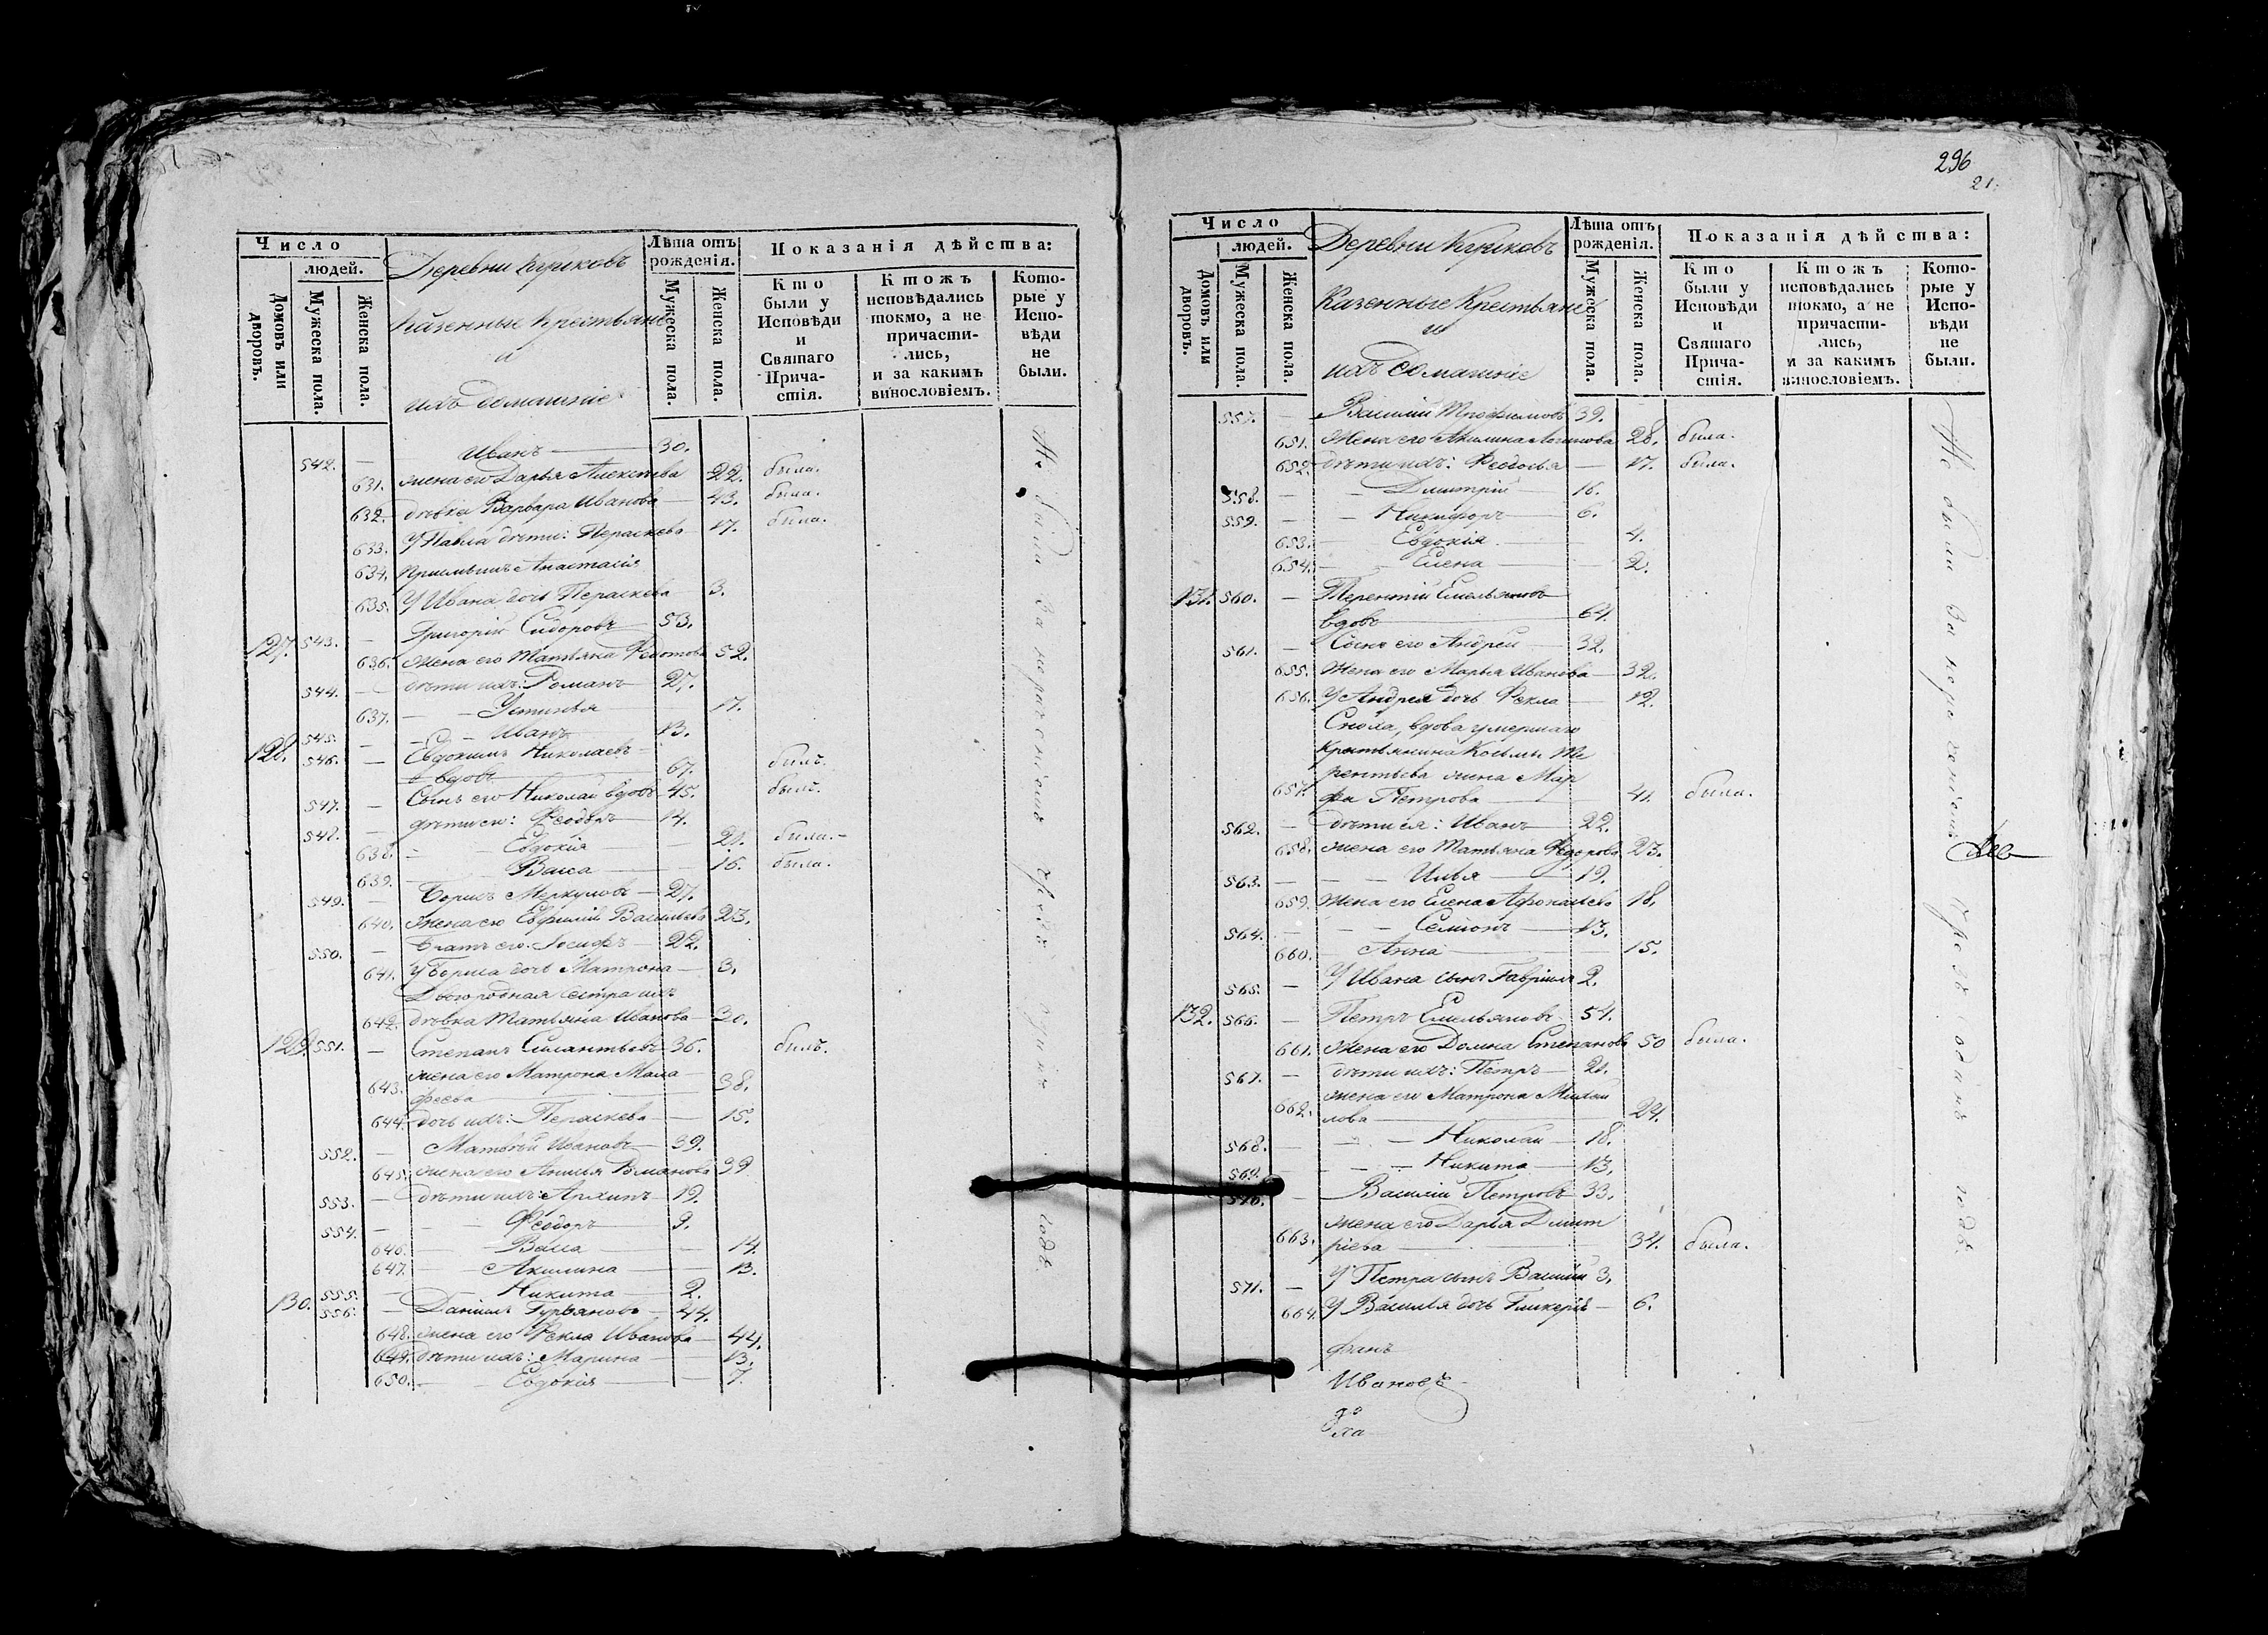 Число
людей.
Домовъ или дворовъ.
Мужеска пола.
Женска пола.
Деревни Куликовъ
Казенные Крестьяне
и
ихъ домашніе
Лѣта отъ рожденія.
Мужеска пола.
Женска пола.
Показанія дѣйства:
Кто были у Исповѣди и Святаго Причастія.
Ктожъ исповѣдались токмо, а не причастились, и за какимъ винословіемъ.
Которые у Исповѣди не были.
542. — Иванъ — 30.
631. жена его Дарья Алексѣева 22. была.
632. дѣвка Варвара Иванова — 43. была.
633. У Павла дѣти: Параскева 17. была.
634. Анастасія
635. У Ивана дочь Параскева 3.
127. 543. — Григорій Сидоровъ 53.
636. жена его Татьяна 52.
544. — дѣти ихъ: Романъ 27.
637. — Устинья 17.
545. — Иванъ 13.
128. 546. — Евдокимъ Николаевъ
вдовъ 67. былъ.
547. — Сынъ его Николай вдовъ 45. былъ.
548. — дѣти его: Феодоръ 14.
638. — Евдокія — 21. была.
639. — Васса — 16. была.
549. — Борисъ Меркуловъ 27.
640. жена его Васильева 23.
550. — Братъ его Іосифъ — 22.
641. У Бориса дочь Матрона — 3.
Двоюродная сестра ихъ
642. дѣвка Татьяна Иванова — 30.
129. 551. — Степанъ 36. былъ.
643. жена его Матрона Мала
феева — 38.
644. дочь ихъ: Параскева — 15.
552. — Матвѣй Ивановъ — 39.
645. жена его Романова 39
553. — дѣти ихъ: Архипъ 19.
554. — Феодоръ 9.
646. — Васса — 14.
647. — Акилина — 13.
555. — Никита 2.
130. 556. — Даніилъ Гурьяновъ 44.
648. жена его Фекла Иванова 44.
649. дѣти ихъ: Марина 13.
650. — Евдокія — 7.
Не были за нерачеіемъ
годъ.
296
21.
Число
людей.
Домовъ или дворовъ.
Мужеска пола.
Женска пола.
Деревни Куликовъ
Казенные Крестьяне
и
ихъ домашніе
Лѣта отъ рожденія.
Мужеска пола.
Женска пола.
Показанія дѣйства:
Кто были у Исповѣди и Святаго Причастія.
Ктожъ исповѣдались токмо, а не причастились, и за какимъ винословіемъ.
Которые у Исповѣди не были.
557. — Василій Трофимовъ 39.
651. жена его Акилина Логинова 28. была.
652. дѣти ихъ: Феодосья — 17. была.
558. — Дмитрій 16.
559. — Никифоръ 6.
653. — Евдокія 4.
654. — Елена — 2.
131. 560. — Терентій Емельяновъ
вдовъ 64.
561. — Сынъ его Андрей — 32.
655. Жена его Марья Иванова 32.
656. У Андрея дочь Фекла 12.
Сноха, вдова умершаго
крестьянина Козьмы Те
рентьева жена Мар
657. фа Петрова 41. была.
562. — дѣти ея: Иванъ 22.
658. жена его Татьяна 23.
563. — Илья 19.
659. Жена его Елена 18.
564. — Семіонъ 13.
660. — Анна 15.
565. — У Ивана сынъ Гавріилъ 2.
132. 566. — Петръ Емельяновъ 54.
661. жена его Домна Степанова 50 была.
567. — дѣти ихъ: Петръ 21.
662. жена его Матрона Михаи
лова 24.
568. — Николай — 18.
569. — Никита — 13.
570. — Василій Петровъ 33.
663. жена его Дарья Дмит
ріева 34. была.
571. — У Петра сынъ Василій 3.
664. У Василья дочь Гликерія — 6.
Ивановъ
Не были за
одинъ годъ.